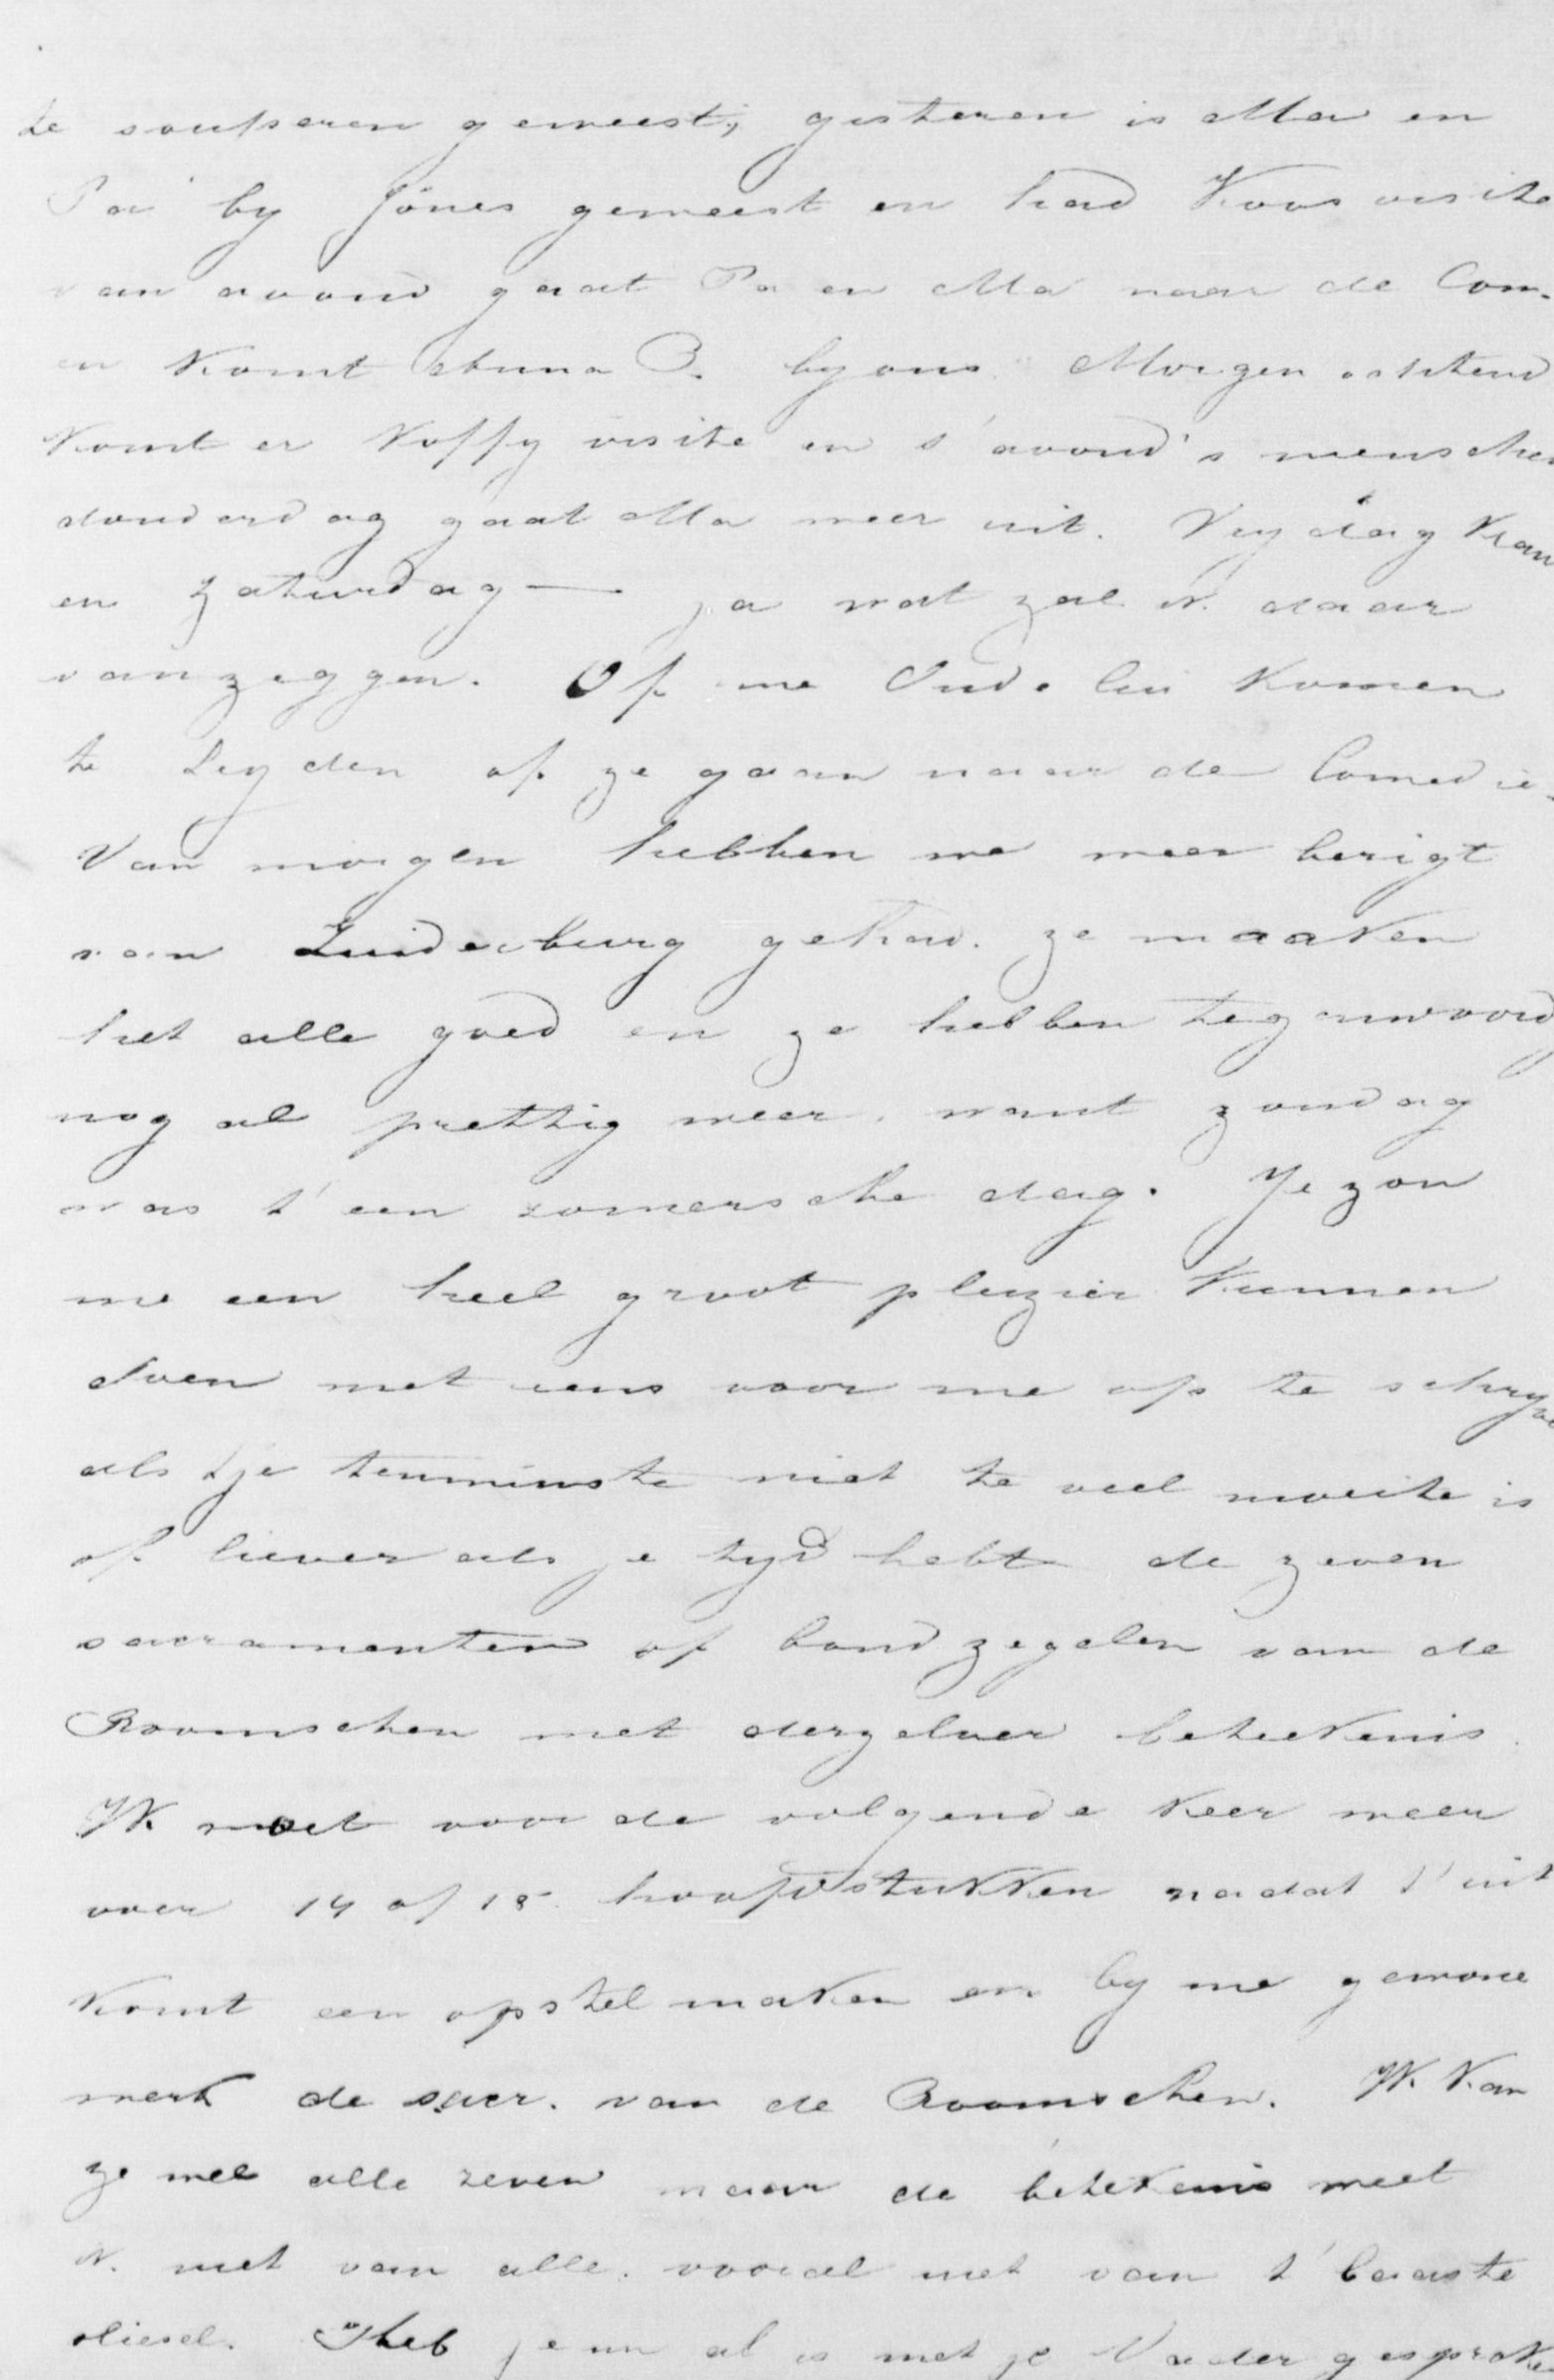 te souperen geweest, gisteren is Ma en
Pa by Jones geweest en had Koos visite
van avond gaat Pa en Ma naar de Com.
en komt Anna B. by ons. Morgen ochtend
komt er koffy visite en s'avond's menschen
donderdag gaat Ma weer uit. Vrydag kran
en zaturdag — ja wat zal ik daar
van zeggen. Of me Oude lui komen
te Leyden of ze gaan naar de Comedie.
Van morgen hebben we weer berigt
van Zuiderburg gehad. ze maaken
het alle goed en ze hebben tegenwoord
nog al prettig weer. want zondag
was t' een zomersche dag. Je zou
me een heel groot plezier kunnen
doen met eens voor me op te schryve
als tje tenminste niet te veel moeite is
of liever als je tyd hebt de zeven
sacramenten of bond zegelen van de
Roomschen met derzelver beteekenis.
Ik moet voor de volgende keer weer
over 14 of 15 hoofdstukken nadat t' uit
komt een opstel maken en by me gewone
werk de sacr. van de Roomschen. Ik kan
ze wel alle zeven maar de betekenis weet
ik niet van alle. vooral niet van t' laaste
oliesel. Heb je nu al is met je Vader gesproken